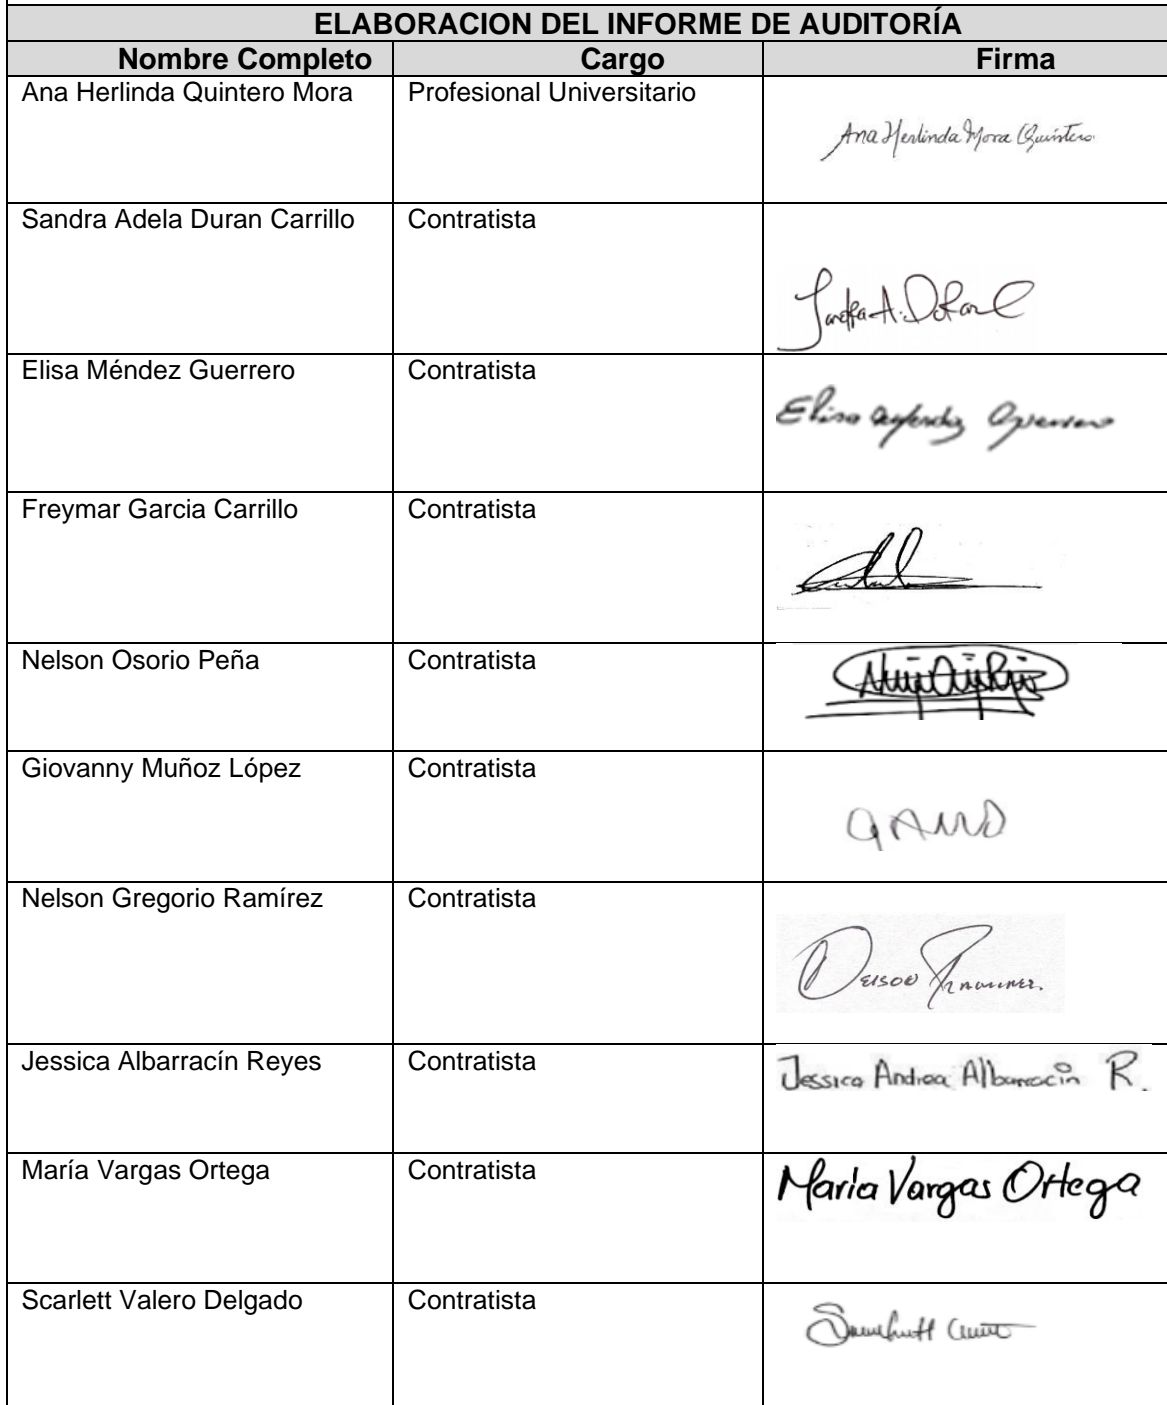 ELABORACION DEL INFORME DE AUDITORÍA
Nombre Completo Cargo Firma
Ana Herlinda Quintero Mora Profesional Universitario
Ana Herlinda Mora Quintero
Sandra Adela Duran Carrillo Contratista
Elisa Méndez Guerrero Contratista
Freymar Garcia Carrillo Contratista
Nelson Osorio Peña Contratista
Giovanny Muñoz López Contratista
Nelson Gregorio Ramírez Contratista
Jessica Albarracín Reyes Contratista
Jessica Andrea Albarracín R.
María Vargas Ortega Contratista
María Vargas Ortega
Scarlett Valero Delgado Contratista